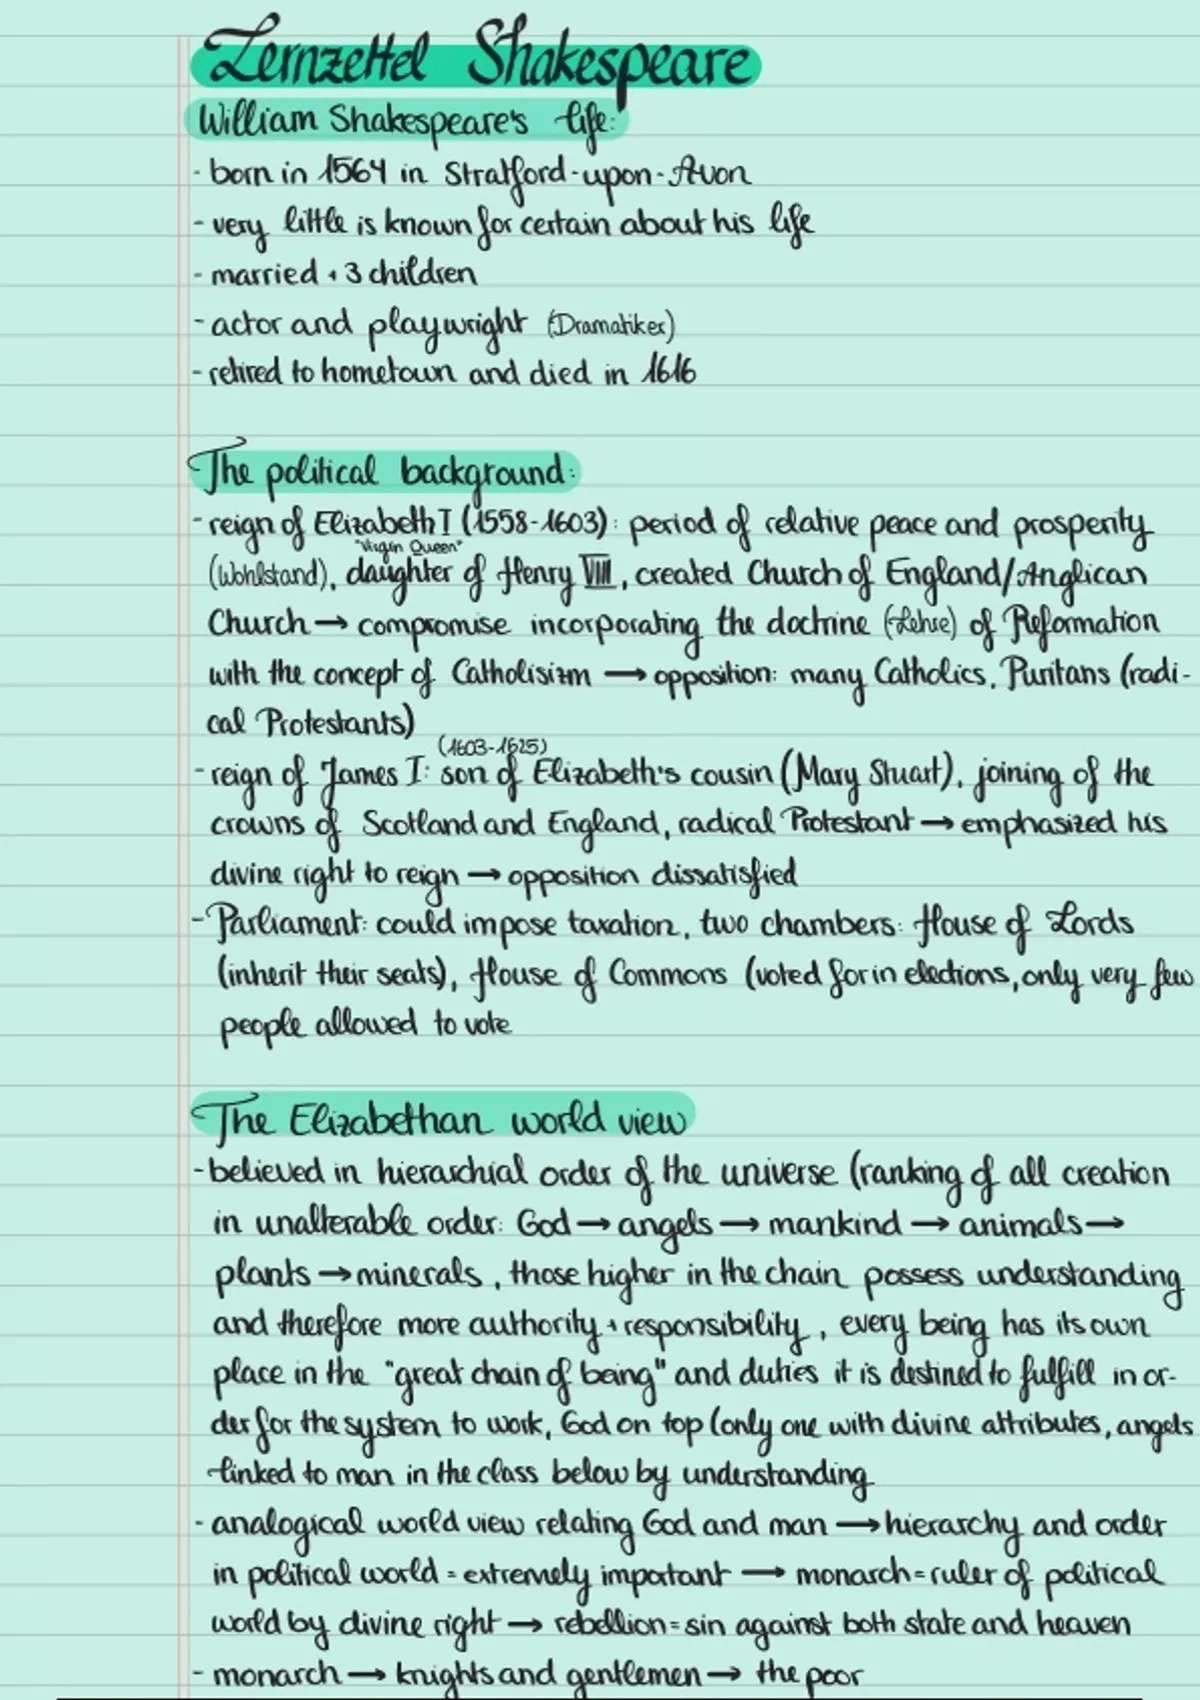 Lernzettel Shakespeare
William Shakespeare's life:
- born in 1564 in Stratford-upon-Avon
- very little is known for certain about his life
- married + 3 children
- actor and playwright (Dramatiker)
- retired to hometown and died in 1616
The political background:
- reign of Elizabeth I (1558-1603): period of relative peace and prosperity
"Virgin Queen"
(Wohlstand), daughter of Henry VIII, created Church of England/Anglican
Church → compromise incorporating the doctrine (Lehre) of Reformation
with the concept of Catholisizm → opposition: many Catholics, Puritans (radi-
cal Protestants)
(1603-1625)
- reign of James I: son of Elizabeth's cousin (Mary Stuart), joining of the
crowns of Scotland and England, radical Protestant → emphasized his
divine right to reign → opposition dissatisfied
- Parliament: could impose taxation, two chambers: House of Lords
(inherit their seats), House of Commons (voted for in elections, only very few
people allowed to vote
The Elizabethan world view
- believed in hierarchial order of the universe (ranking of all creation
in unalterable order: God → angels → mankind → animals →
plants → minerals, those higher in the chain possess understanding
and therefore more authority + responsibility, every being has its own
place in the "great chain of being" and duties it is destined to fulfill in or-
der for the system to work, God on top (only one with divine attributes, angels
linked to man in the class below by understanding
- analogical world view relating God and man → hierarchy and order
in political world = extremely important → monarch = ruler of political
world by divine right → rebellion = sin against both state and heaven
- monarch → knights and gentlemen → the poor